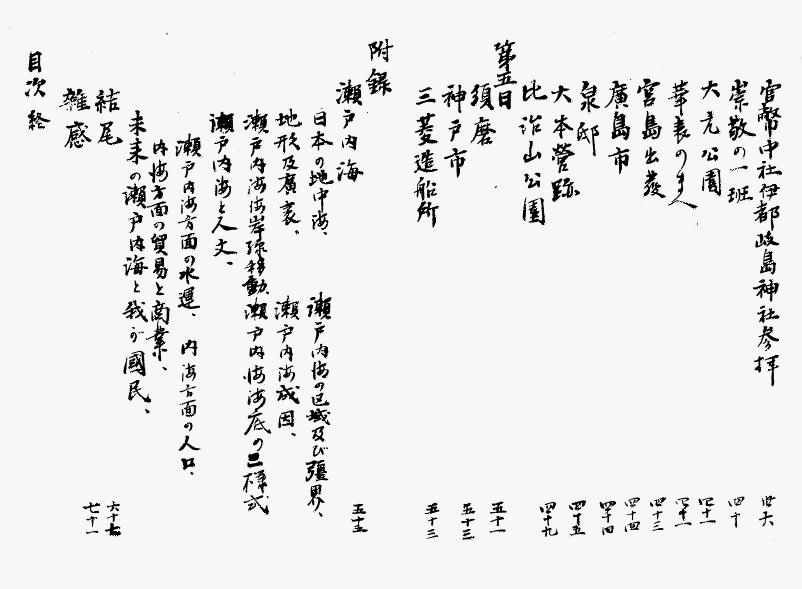 官幣中社伊都岐島神社参拝 廿六
崇敬の一班 四十
大元公園 四十一
華表のまへ 四十一
宮島出發 四十三
廣島市 四十四
泉邸 四十四
大本營跡 四十五
比治山公園 四十九
第五日
須磨 五十一
神戸市 五十三
三菱造船所 五十三
附録
瀬戸内海 五十五
日本の地中海、 瀬戸内海の区域及び彊界、
地形及廣袤、 瀬戸内海成因、
瀬戸内海海岸線移動、瀬戸内海海底の二様式
瀬戸内海と人文、
瀬戸内海方面の水運、 内海方面の人口、
内海方面の貿易と商業、
未来の瀬戸内海と我が國民、
結尾 六十七
雑感 七十一
目次 終